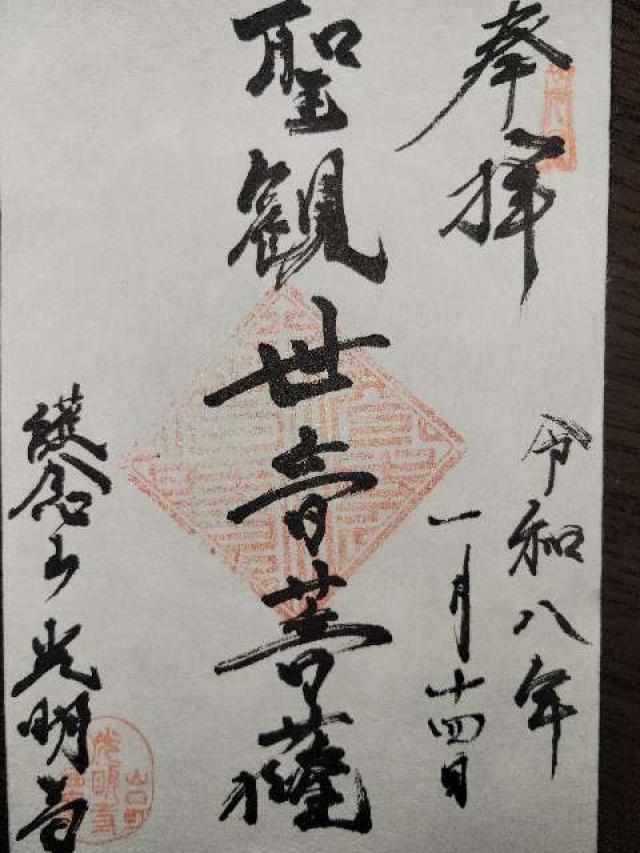 奉拝
令和八年
一月十四日
聖観世音菩薩
護念山光明寺